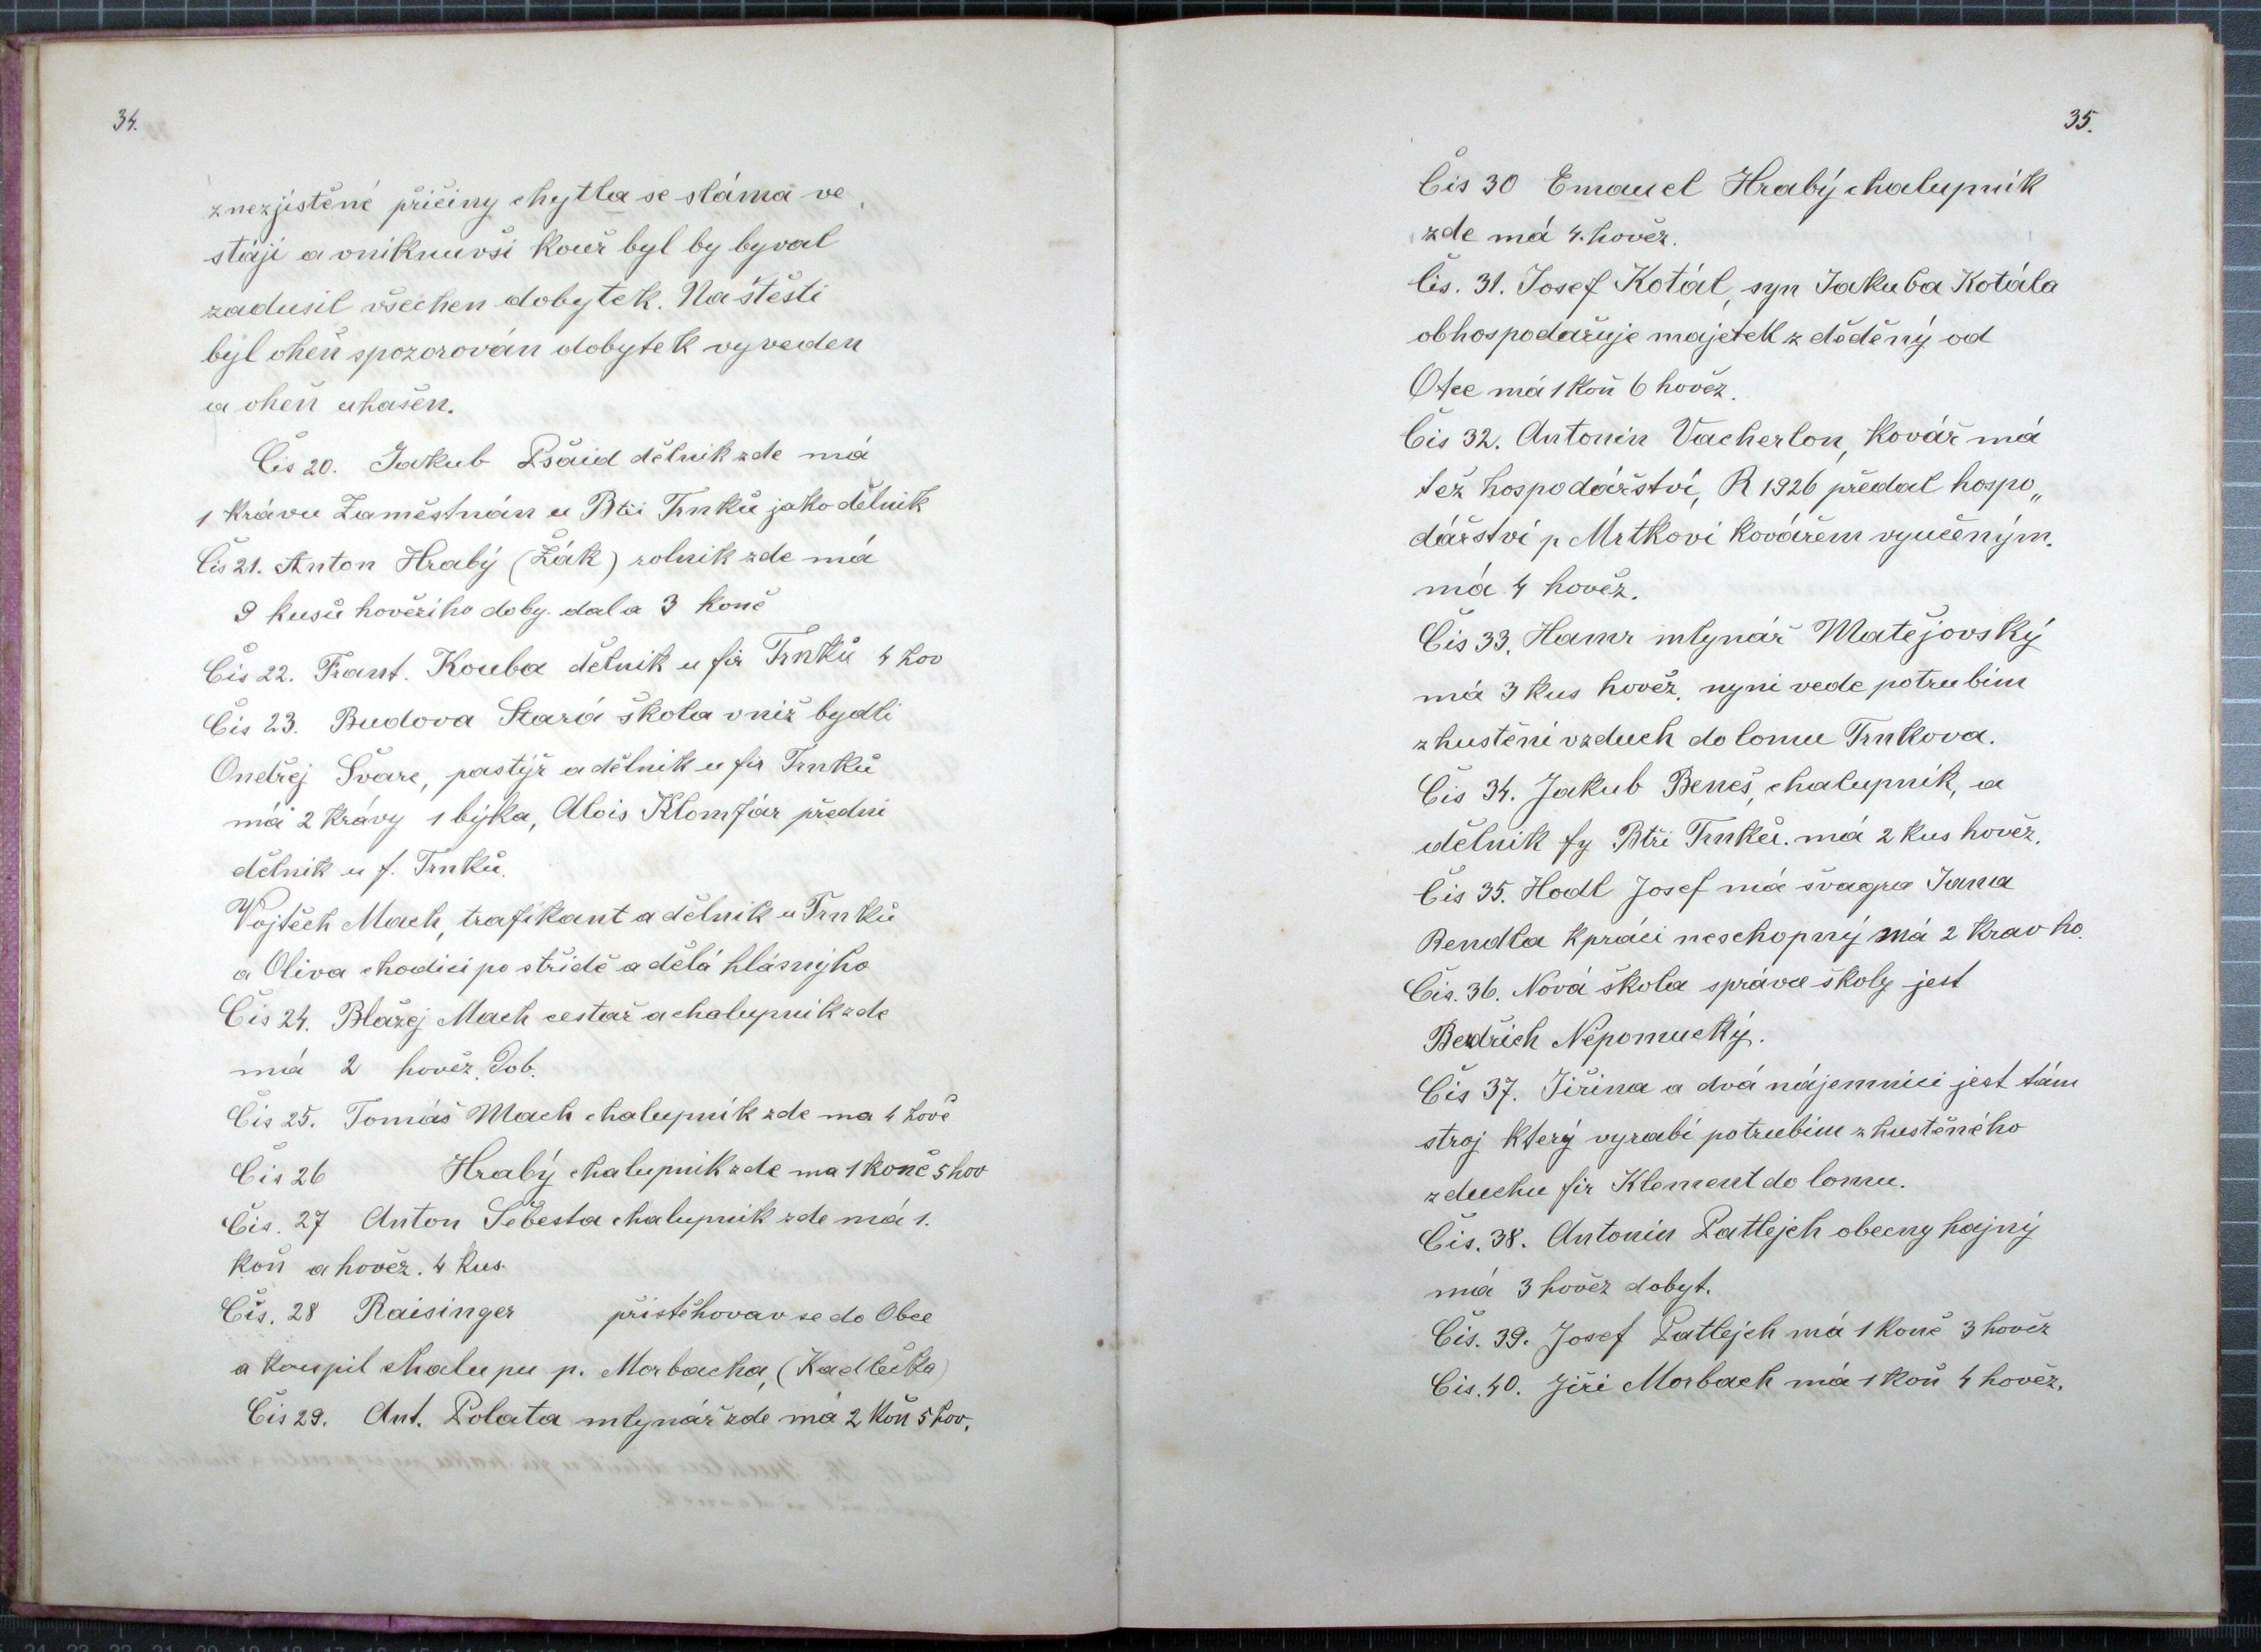 34.
z nezjistěné příčiny chytla se sláma ve
stáji a vniknuvší kouř byl by býval
zadusil všechen dobytek. Na štěsti
byl oheň spozorován dobytek vyveden
a oheň uhašen.
Čis 20. Jakub Pšaid dělnik zde má
1 krávu Zaměstnán u Btří Trnků jako dělnik
Čis 21. Anton Hrabý (Žák) rolnik zde má
9 kusů hověziho doby. dal a 3 koně
Čis 22. Frant. Kouba dělnik u fir Trnků 4 hov
Čis 23. Budova Stará škola v niž bydli
Ondřej Švarc, pastýř a dělnik u fir Trnků
má 2 krávy 1 býka, Alois Klomfár předni
dělnik u f. Trnků.
Vojtěch Mach, trafikant a dělnik u Trnků
a Oliva chodici po střídě a dělá hlásnýho
Čis 24. Blažej Mach cestař a chalupnik zde
má 2 hověz. Dob.
Čis 25. Tomáš Mach chalupník zde ma 4 hově
Čis 26 Hrabý chalupnik zde ma 1 koně 5 hov
Čis. 27 Anton Šebesta chalupnik zde má 1.
koň a hověz. 4 kus.
Čis. 28 Raisinger přistěhovav se do Obce
a koupil chalupu p. Morbacha, (Kadlečka)
Čis 29. Ant. Polata mlynář zde má 2 koň 5 hov.
35.
Čis 30 Emanuel Hrabý chalupník
zde má 4. hověz.
Čis. 31. Josef Kotál, syn Jakuba Kotála
obhospodařuje majetek zděděný od
Otce má 1 koň 6 hověz.
Čis 32. Antonin Vacherlon, kovář má
též hospodářství, R 1926 předal hospo„
dářství p Mrtkovi kovářem vyučeným.
má 4 hověz.
Čis 33. Hamr mlynář Matějovský
má 3 kus hověz. nyni vede potrubim
zhuštěni vzduch do lomu Trnkova.
Čis 34. Jakub Beneš, chalupník, a
dělnik fy Btři Trnků. má 2 kus hověz.
Čis 35. Hodl Josef má švagra Jana
Bendla k práci neschopný má 2 krav ho.
Čis. 36. Nová škola správce školy jest
Bedřich Nepomucký.
Čis 37. Jiřina a dvá nájemnici jest tám
stroj který vyrabí potrubim zhustěného
zduchu fir Klement do lomu.
Čis. 38. Antonín Patlejch obecny hajný
má 3 hověz dobyt.
Čis. 39. Josef Patlejch má 1 koně 3 hověz
Čis. 40. Jiří Morbach má 1 koň 4 hověz.